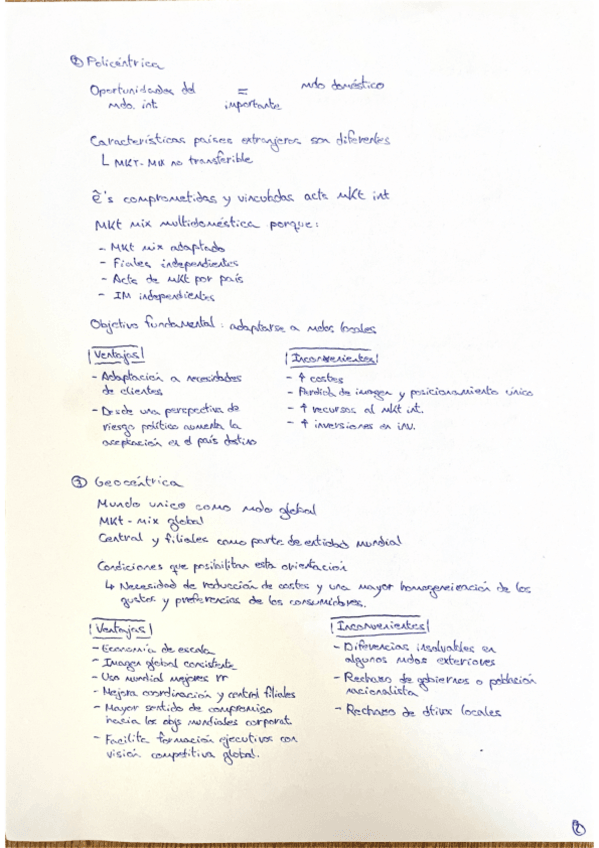 ② Policéntrica
Oportunidades del = mdo doméstico
mdo. int importante
Características países extranjeros son diferentes
L MKT-MIX no transferible
ẽ's comprometidas y vinculadas acts mkt int
Mkt mix multidoméstica porque:
- Mkt mix adaptado
- Fiales independientes
- Acts de mkt por país
- IM independientes
Objetivo fundamental: adaptarse a mdos locales
Ventajas
- Adaptación a necesidades
de clientes
- Desde una perspectiva de
riesgo político aumenta la
aceptación en el país destino
Inconvenientes
- ↑ costes
- Perdida de imagen y posicionamiento único
- ↑ recursos al mkt int.
- ↑ inversiones en inv.
③ Geocéntrica
Mundo unico como mdo global
Mkt-mix global
Central y filiales como parte de entidad mundial
Condiciones que posibilitan esta orientación
↳ Necesidad de reducción de costes y una mayor homogeneización de los
gustos y preferencias de los consumidores.
Ventajas
- Economía de escala
- Imagen global consistente
- Uso mundial mejores rr
- Mejora coordinación y control filiales
- Mayor sentido de compromiso
hacia los objs mundiales corporat.
- Facilita formación ejecutivos con
visión competitiva global.
Inconvenientes
- Diferencias insalvables en
algunos mdos exteriores
- Rechazo de gobiernos o población
nacionalista
- Rechazo de dtivos locales
2